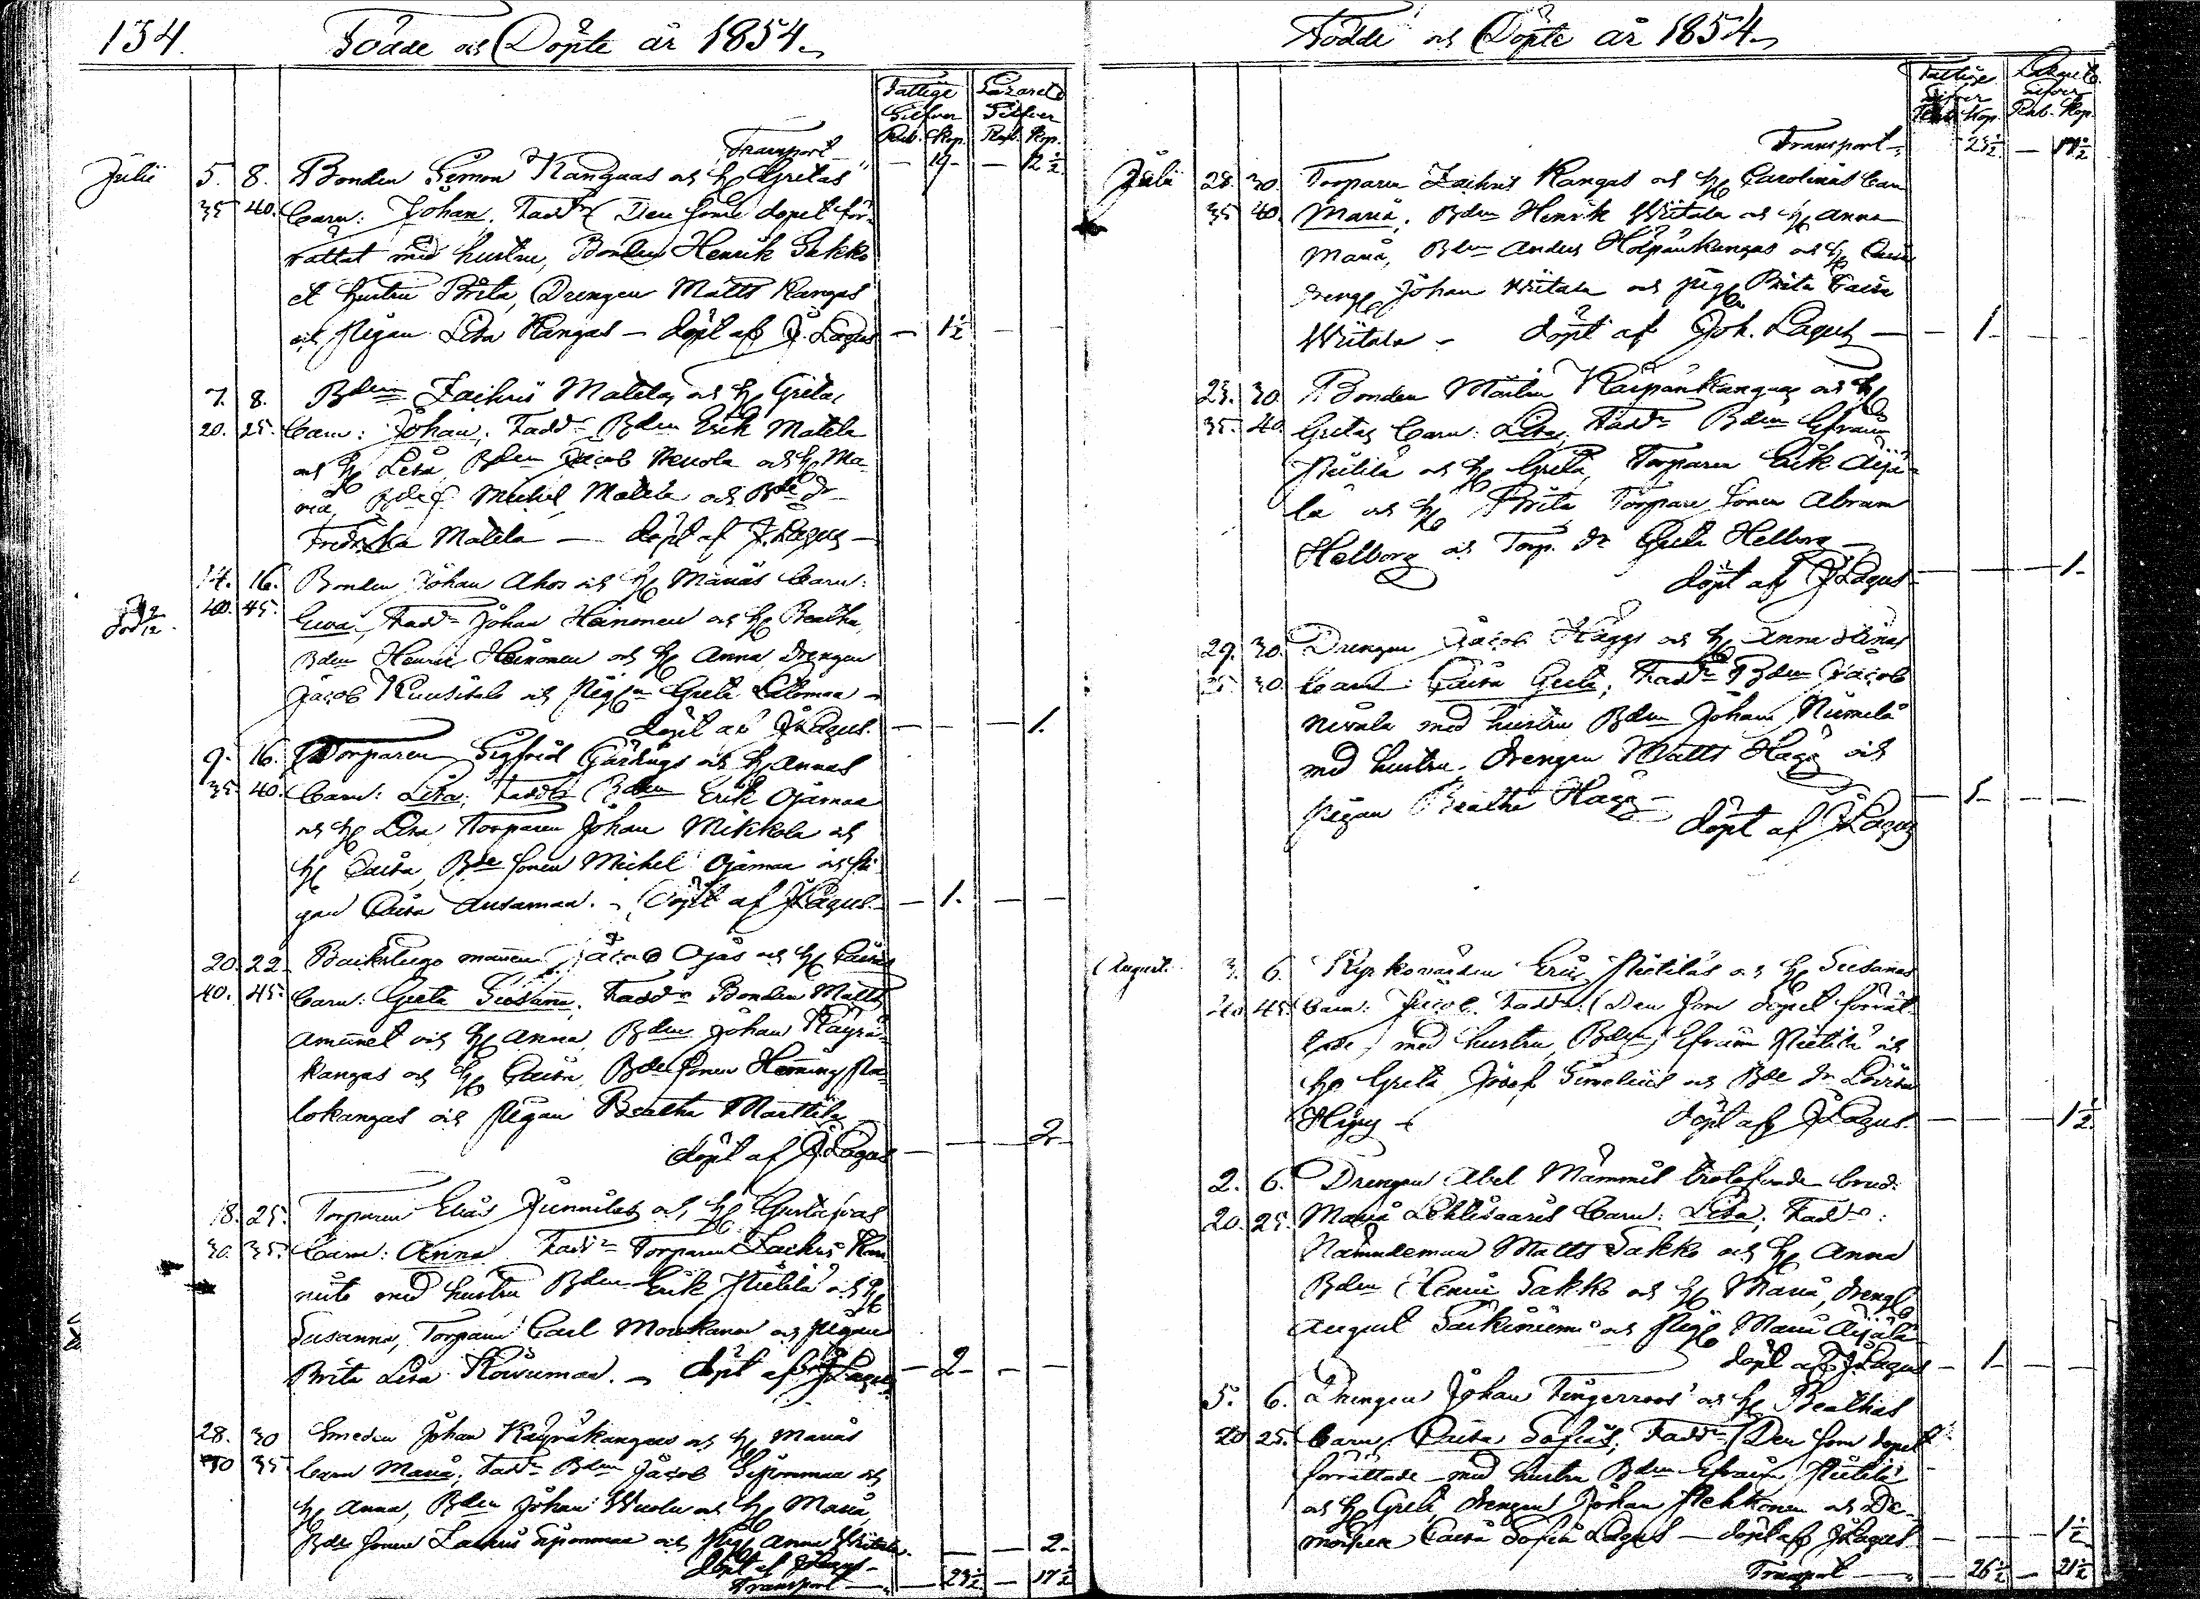 134.
Födde och Döpte år 1854.
Fattige Lazarets
Silfver Silfver
Rub. Kop. Rub. Kop.
Transport — 19 — 12½
Julii 5. 8. Bonden Simon Kanguas och H. Gretas
35 40. Barn: Johan. Fadd. (Den som dopet för-
rättat med hustru, Bonden Henrik Sakko
et hustru Brita, Drengen Matts Kangas
och Pigan Lisa Kangas — döpt af J. Lagus — 1½ — —
7. 8. Bden Zachris Matelas och H. Gretas
20. 25. Barn: Johan. Fadd. Bden Erik Matela
och H. Lisa, Bden Jacob och H. Ma-
ria, Michel Matela och Bde Dr
Fredrika Matela — döpt af J. Lagus —
14. 16. Bonden Johan Ahos och H. Marias Barn:
40. 45. Ewa, Fadd. Johan Heinonen och H. Beatha,
Bden Henric Heinonen och H. Anna, Drengen
Jacob Kuusisalo och Pigan Greta
döpt af J Lagus. — — — 1.
9. 16. Torparen Sigfrid och H. Annas
35 40. Barn: Lisa; Fadd. Bden Erik Ojamaa
och H. Lisa, Torparen Johan Mikkola och
H. Caisa, Bde Sonen Michel Ojamaa och Pi-
gan Caisa Ausamaa. — Döpt af J Lagus. — 1. — —
20. 22. Backstugo mannen Jacob Ojas och H. Caisas
40. 45. Barn: Greta Susanna. Fadd. Bonden Matts
och H. Anna, Bden Johan Käyrä-
kangas och H. Caisa, Bde Sonen Henning Pa-
lokangas och Pigan Beatha Marttila
döpt af J Lagus — — — 2.
18. 25. Torparen Elias Junnilas och H. Gustafvas
30. 35. Barn: Anna Fadd. Torparen Zachris
med hustru Bden Erik Pietilä och H.
Susanna, Torparen Carl och Pigan
Brita Lisa — döpt af J Lagus — 2 — —
28. 30 Smeden Johan Käyräkangas och H. Marias
30 35 Barn Maria; Fadd. Bden Jacob Sipponmaa och
H. Anna, Bden Johan Wuolu och H. Maria,
Bde Sonen Zachris Sipponmaa och Pig. Anna Wiitala.
döpt af J Lagus — — — 2.
Transport — 23½ — 17½
Födde och Döpte år 1854.
Fattige Lazarets
Silfver Silfver
Rub. Kop. Rub. Kop.
Transport — 23½ — 17½
Julii 28. 30. Torparen Zachris Kangas och H. Carolinas Barn
35 40. Maria. Bden Henrik Wiitala och H. Anna
Maria, Bden Anders Holpankangas och H. Caisa
Dreng. Johan Wiitala och Pig. Brita Caisa
Wiitala — döpt af Joh. Lagus — — 1. — —
23. 30. Bonden Martin Karpankanguas och H.
35. 40. Gretas Barn: Lisa, Fadd. Bden Efraim
Pietilä och H. Greta, Torparen Erik Äijä-
lä och H. Brita Torpare Sonen Abram
Helborg och Torp. Dr Greta Helborg —
döpt af J Lagus — — — 1.
29. 30. Drengen Jacob Häggs och H. Anna Stinas
25. 30. Barn: Caisa Greta; Fadd. Bden Jacob
Nivala med hustru Bden Johan Niemelä
med hustru. Drengen Matts Hägg och
Pigan Beatha Hägg —
döpt af J Lagus — 1 — —
August. 3. 6. Kyrkovärden Eric Pietiläs och H. Susannas
40 45. Barn: Jacob. Fadd. (Den som dopet förrät-
tade) med hustru, Bden Efraim Pietilä och
H. Greta, Josef Simelius och Bde Dr Lovisa
döpt af J Lagus. — — — 1½
2. 6. Drengen Abel Mammis trolofvade brud:
20. 25. Maria Lehtisaaris Barn: Lisa; Fadd.:
Nämndeman Matts Sakko och H. Anna
Bden Henric Sakko och H. Maria, Dreng.
August Särkiniemi och Pig. Maria Äijälä
döpt af J Lagus — 1 — —
5. 6. Drengen Johan Tingerroos' och H. Beathas
20 25. Barn, Caisa Sofia; Fadd. (Den som dopet
förrättade — med hustru Bden Efraim Pietilä
och H. Greta, Drengen Johan Pehkonen och De-
moiselle Caisa Sofia Lagus — döpt af J Lagus — — — 1½
Transport — 26½ — 21½